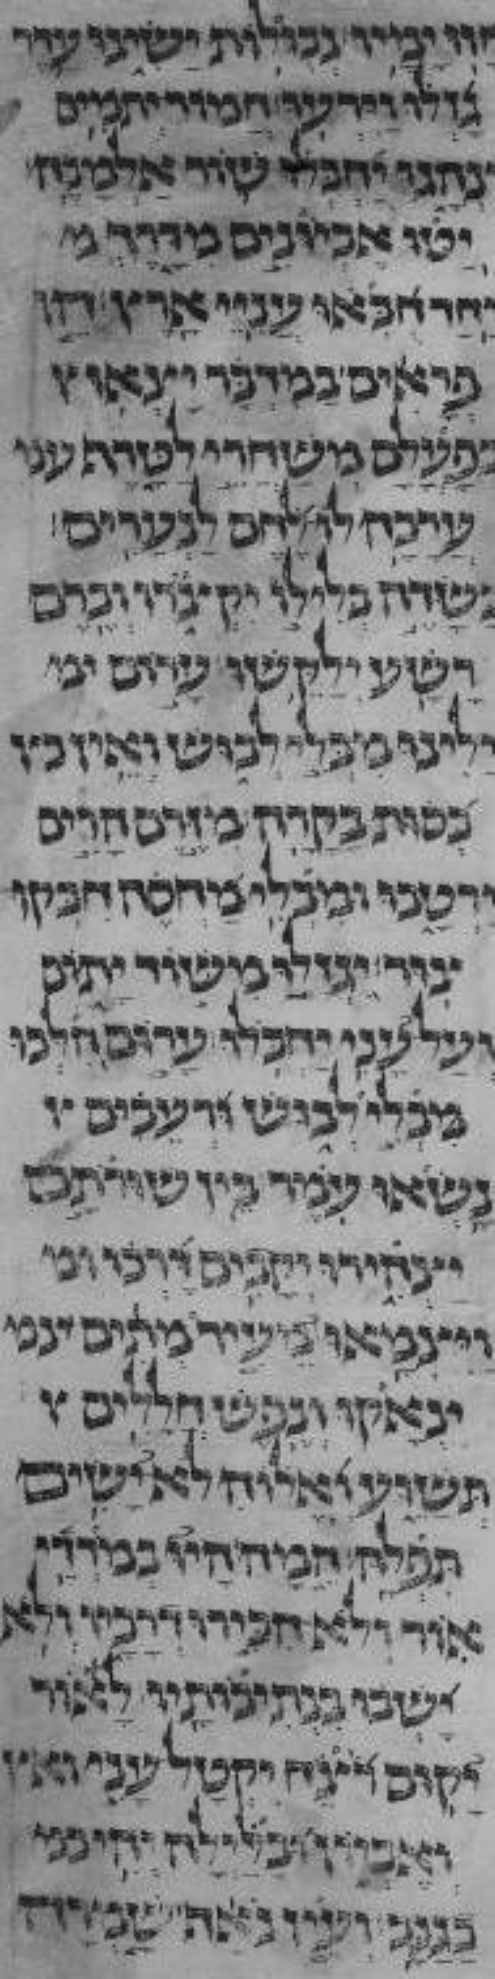 חזו ימיו גבולות ישיגו עדר
גזלו וירעו חמור יתמים
ינהגו יחבלו שור אלמנה
יטו אביונים מדרך
יחד חבאו עניי ארץ הן
פראים במדבר יצאו
בפעלם משחרי לטרף
ערבה לו לחם לנערים
בשדה בלילו יקצירו וכרם
רשע ילקשו ערום
ילינו מבלי לבוש ואין
כסות בקרה מזרם הרים
ירטבו ומבלי מחסה חבקו
צור יגזלו משוד יתום
ועל עני יחבלו ערום הלכו
מבלי לבוש ורעבים
נשאו עמר בין שורתם
יצהירו יקבים דרכו
ויצמאו מעיר מתים
ינאקו ונפש חללים
תשוע ואלוה לא ישים
תפלה המה היו במרדי
אור ולא הכירו דרכיו ולא
ישבו בנתיבותיו לאור
יקום רוצח יקטל עני
ואביון ובלילה יהי
כגנב ועין נאף שמרה